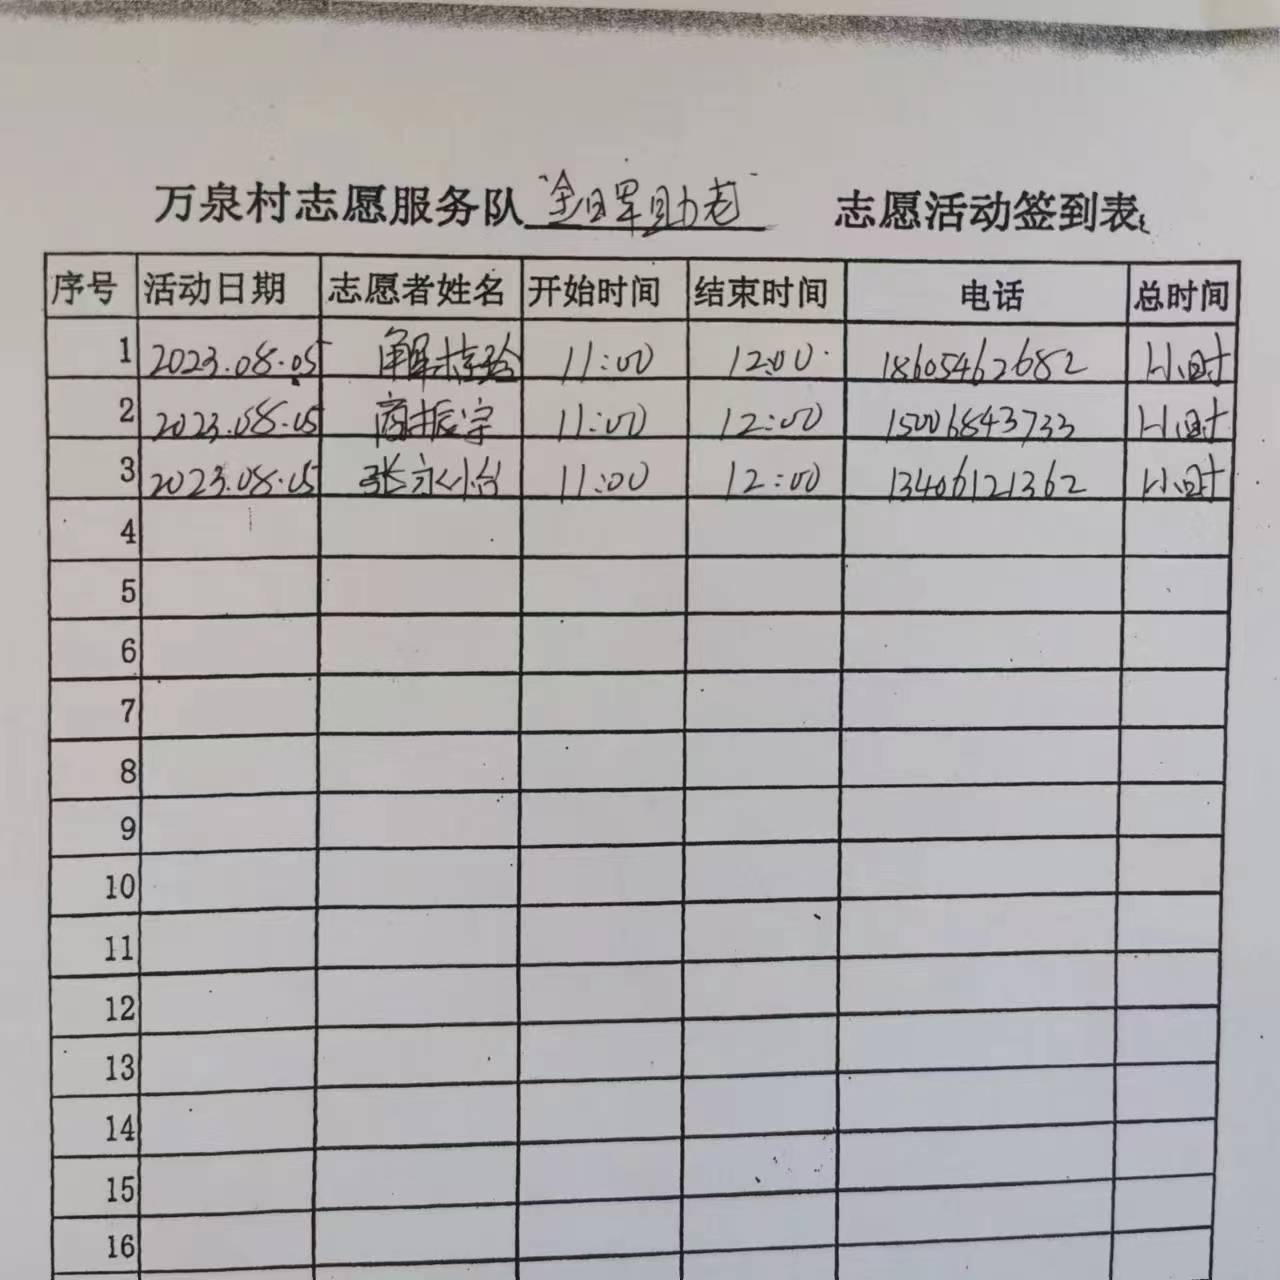 万泉村志愿服务队 "金晖助老" 志愿活动签到表
序号 活动日期 志愿者姓名 开始时间 结束时间 电话 总时间
1 2023.08.05 解 11:00 12:00 18605462682 1小时
2 2023.08.05 商振宇 11:00 12:00 15006843733 1小时
3 2023.08.05 张永怡 11:00 12:00 13406121362 1小时
4
5
6
7
8
9
10
11
12
13
14
15
16